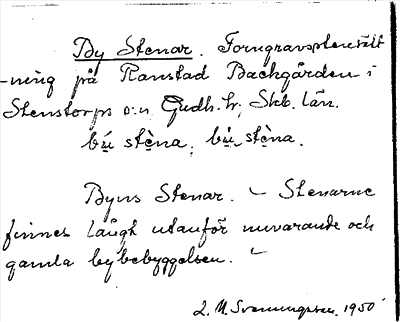 By Stenar. Forngravsplenutätt
-ning på Ranstad Backgården i
Stenstorps s:n Gudh. hr. Skb. län.
bý stèna, bý stèna.
Byns Stenar. – Stenarne
finnes långt utanför nuvarande och
gamla bybebyggelsen. –
L. M. Svenungsson. 1950